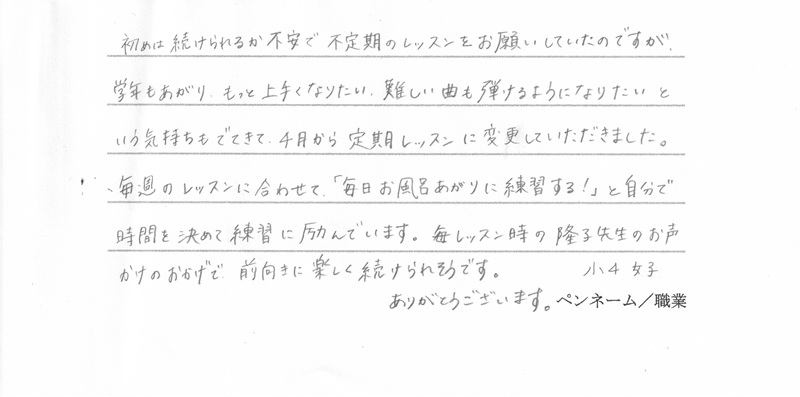 初めは続けられるか不安で不定期のレッスンをお願いしていたのですが、
学年もあがり、もっと上手くなりたい、難しい曲も弾けるようになりたいと
いう気持ちもでてきて、4月から定期レッスンに変更していただきました。
毎週のレッスンに合わせて、「毎日お風呂あがりに練習する!」と自分で
時間を決めて練習に励んでいます。毎レッスン時の隆子先生のお声
かけのおかげで、前向きに楽しく続けられそうです。 小4 女子
ありがとうございます。ペンネーム/職業